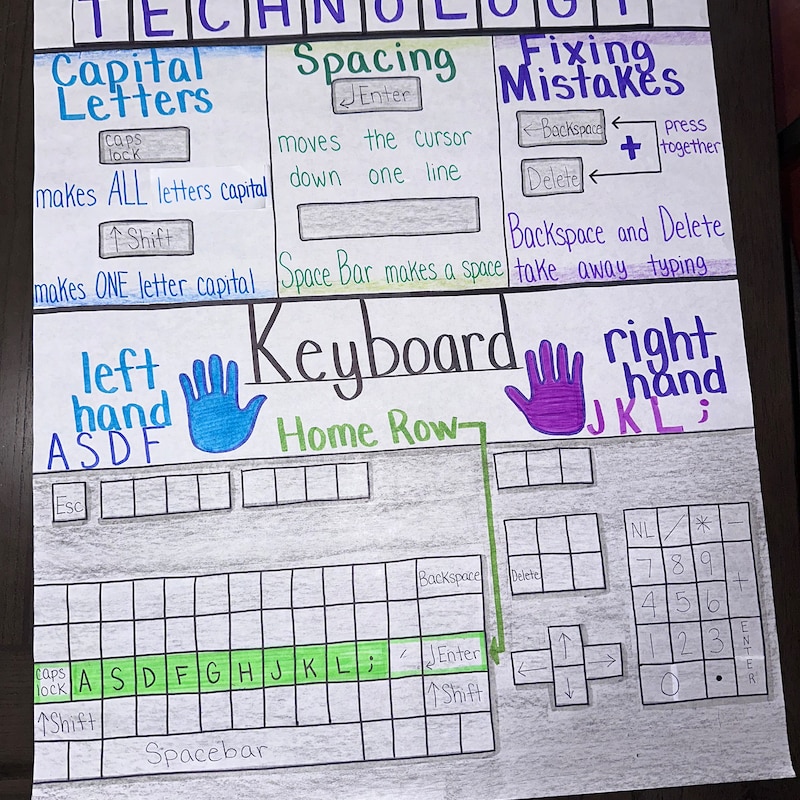 TECHNOLOGY
Capital
Letters
caps
lock
makes ALL letters capital
↑Shift
makes ONE letter capital
Spacing
↲Enter
moves the cursor
down one line
Space Bar makes a space
Fixing
Mistakes
←Backspace
+
Delete
press
together
Backspace and Delete
take away typing
Keyboard
left
hand
ASDF
right
hand
JKL;
Home Row
Esc
Backspace
caps
lock
A S D F G H J K L ; ' ↲Enter
↑Shift
↑Shift
Spacebar
Delete
↑
← →
↓
NL / * -
7 8 9 +
4 5 6
1 2 3 ENTER
0 .